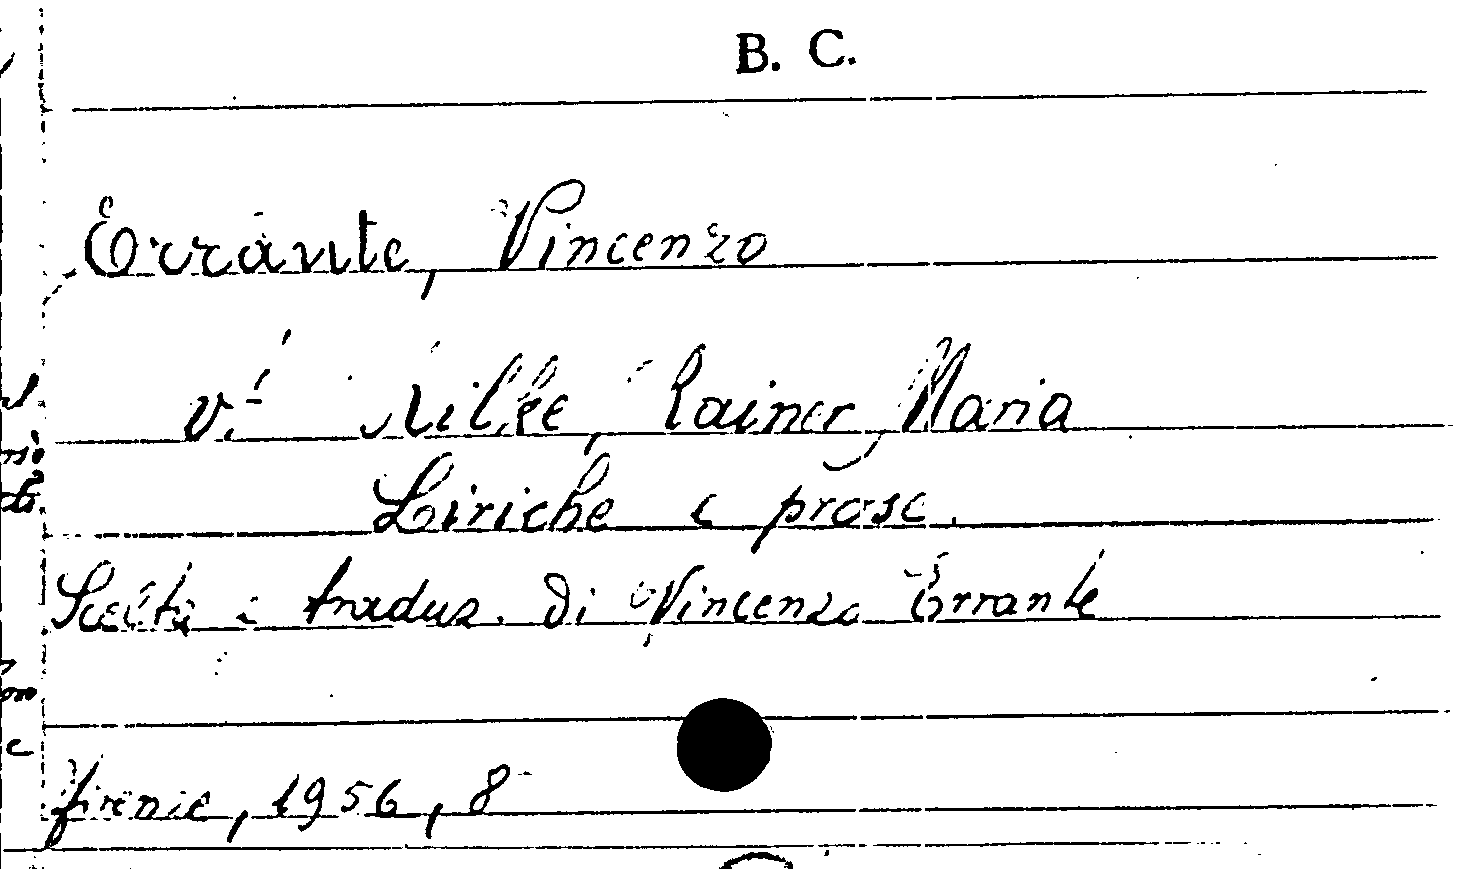 B. C.
Errante, Vincenzo
v. Rilke, Rainer Maria
Liriche e prose.
Scelte e traduz. di Vincenzo Errante
Firenze, 1956, 8